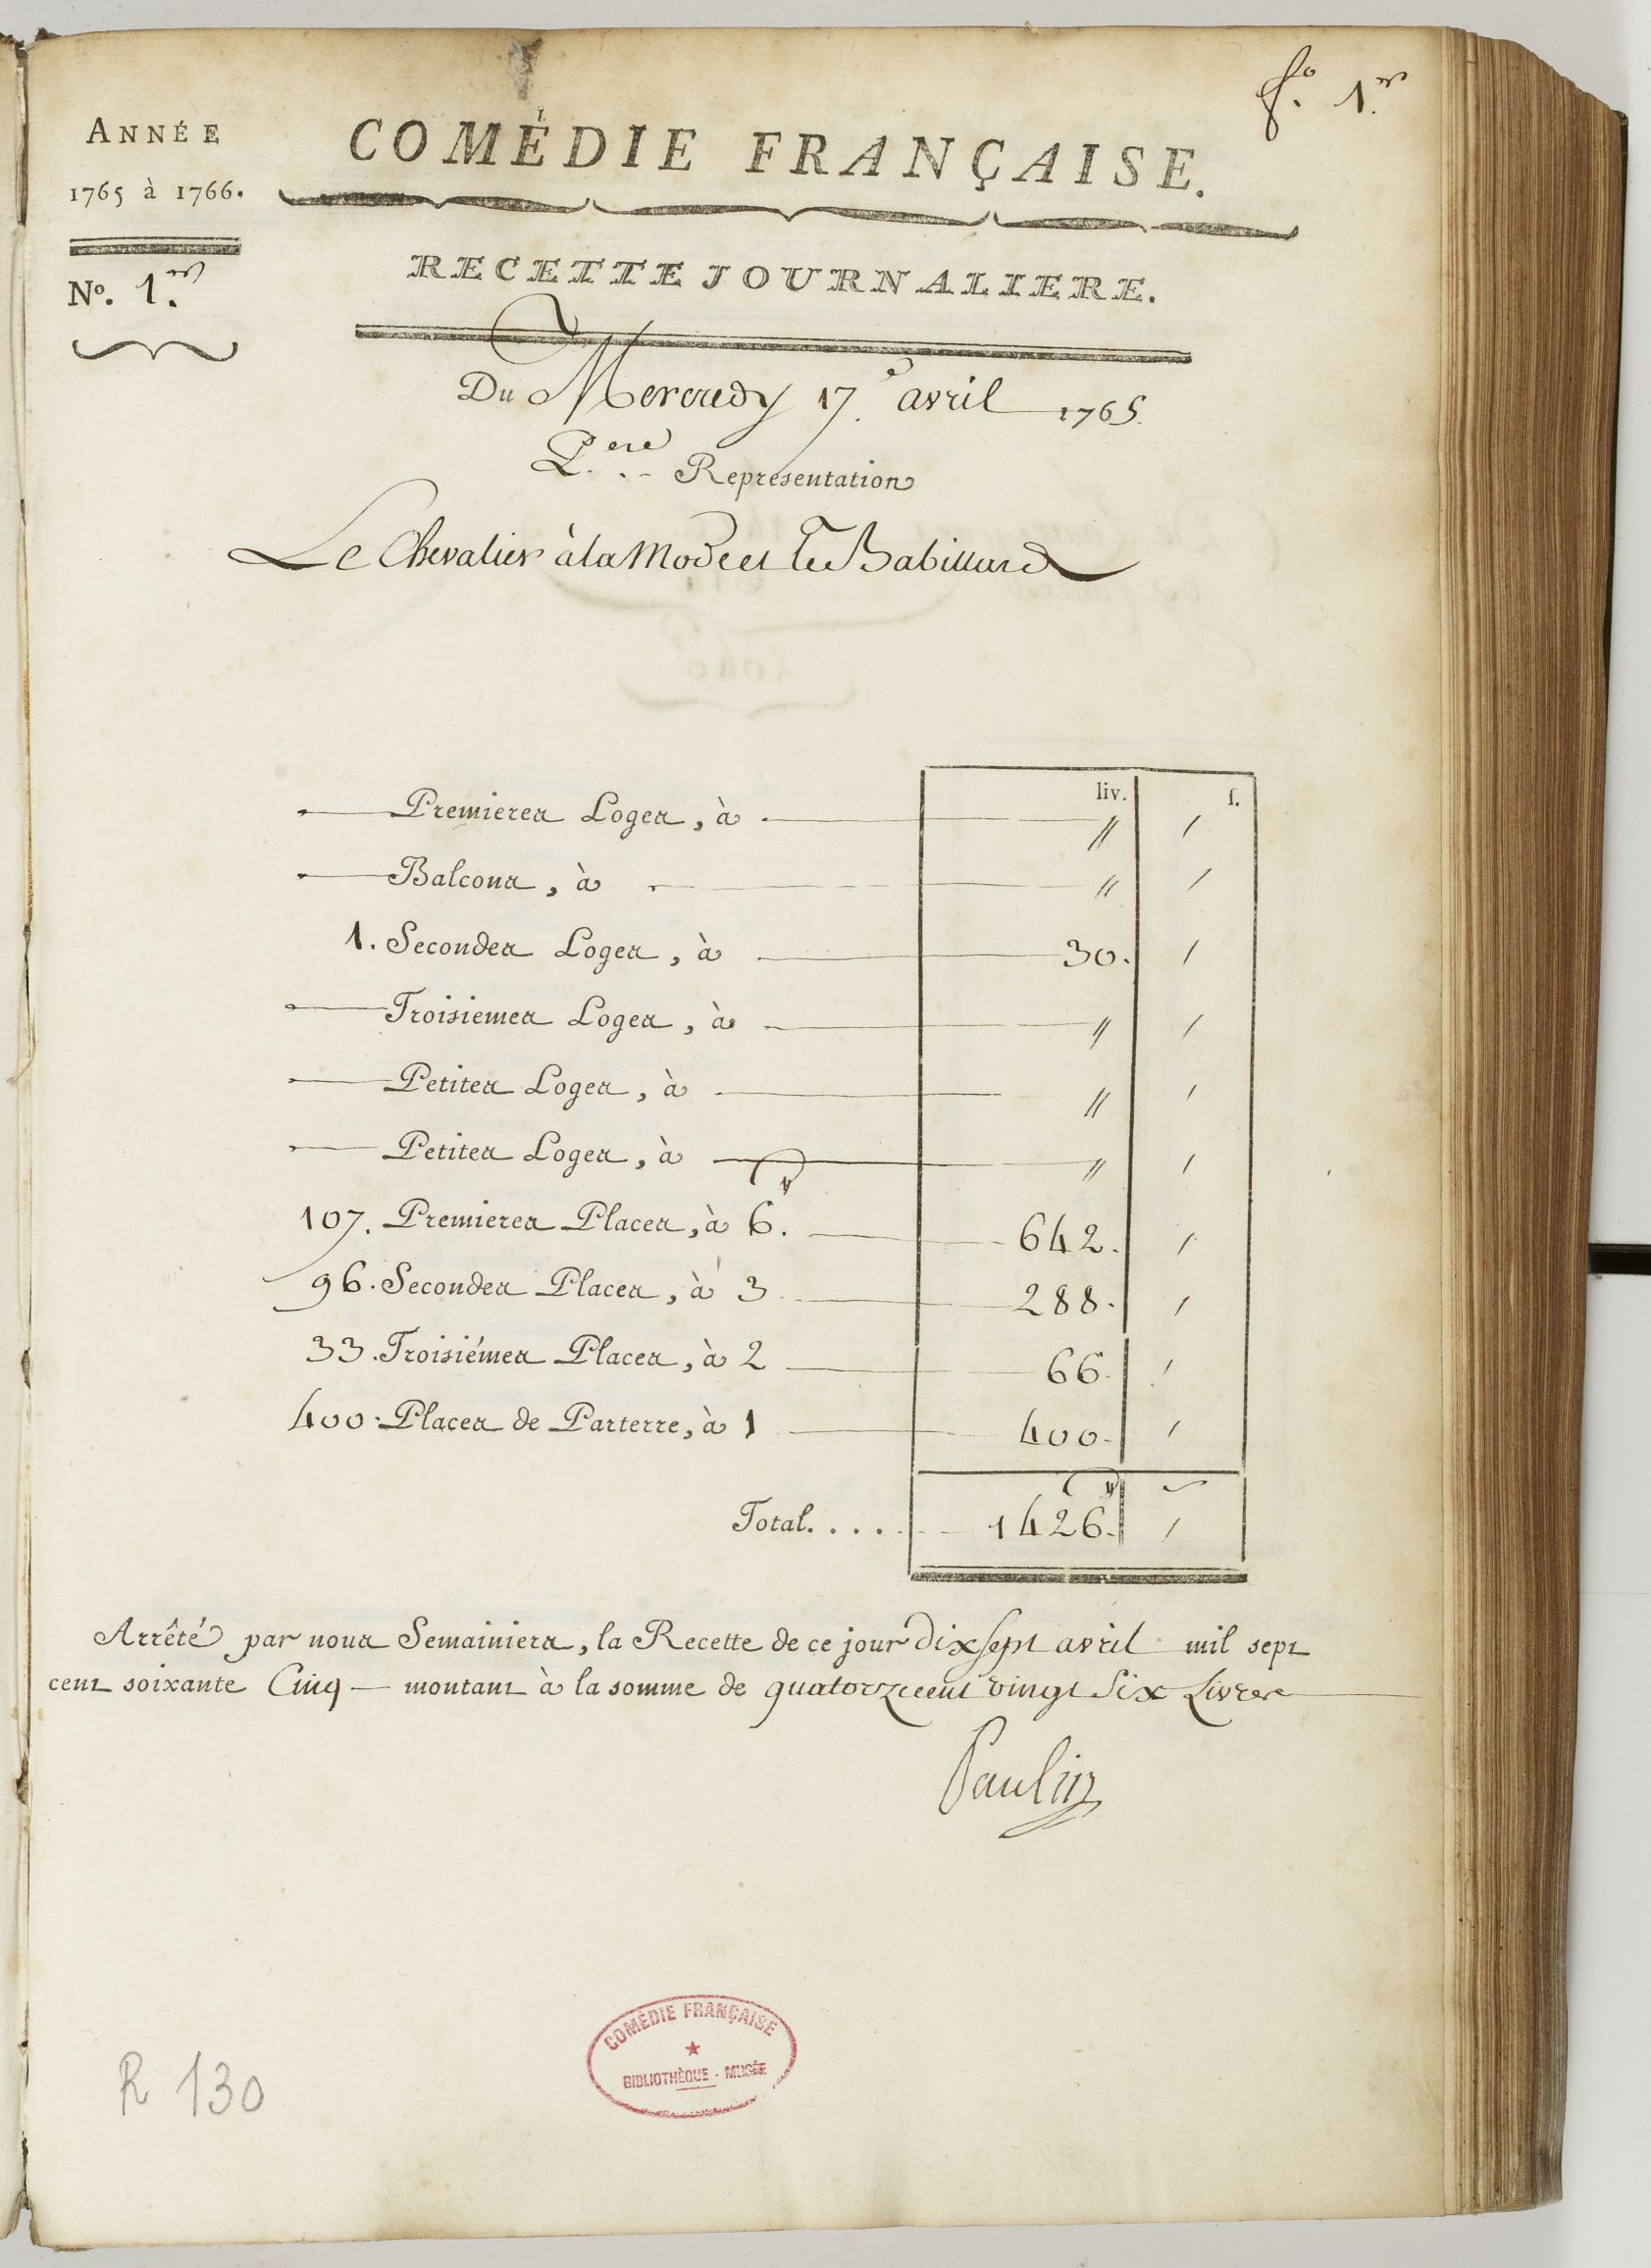 f.º 1.er
ANNÉE
1765 à 1766.
COMÉDIE FRANÇAISE.
Nº. 1.er
RECETTE JOURNALIERE.
Du Mercredy 17.e avril 1765.
P.ere Représentation
Le Chevalier à la Mode et Le Babillard
liv. s.
Premieres Loges, à " /
Balcons, à " /
1. Secondes Loges, à 30. /
Troisiemes Loges, à " /
Petites Loges, à " /
Petites Loges, à " /
107. Premieres Places, à 6.# 642. /
96. Secondes Places, à 3 288. /
33. Troisiémes Places, à 2 66. /
400. Places de Parterre, à 1 400. /
Total..... 1426.# /
Arrêté par nous Semainiers, la Recette de ce jour dix sept avril mil sept
cent soixante Cinq — montant à la somme de quatorze cent vingt Six Livres
Paulin
COMÉDIE FRANÇAISE
BIBLIOTHÈQUE - MUSÉE
R 130